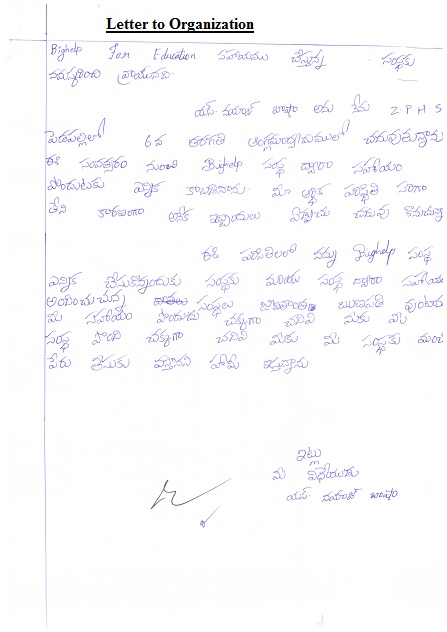 Letter to Organization
Bighelp For Education సహాయము చేస్తున్న సంస్థకు
నమస్కరించి వ్రాయునది.
యస్. నవాజ్ బాషా అను నేను Z.P.H.S
పెదపల్లిలో 6వ తరగతి ఆంగ్లమాధ్యమములో చదువుతున్నాను
ఈ సంవత్సరం నుంచి Bighelp సంస్థ ద్వారా సహాయం
పొందుటకు ఎన్నిక కాబడినాను. మా ఆర్థిక పరిస్థితి సరిగా
లేని కారణంగా అనేక ఇబ్బందులు చదువు
ఈ పరిస్థితిలలో నన్ను Bighelp సంస్థ
ఎన్నిక చేసుకొన్నందుకు సంస్థకు మరియు సంస్థ ద్వారా సహాయం
అందించుచున్న సంస్థలు ఋణపతి వుంటాను
మీ సహాయం పొందుచు చక్కగా చదివి మీకు మీ
సంస్థ పొంది చక్కగా చదివి మీకు మీ సంస్థకు మంచి
పేరు తీసుకు వస్తానని హామీ ఇస్తున్నాను
ఇట్లు
మీ విధేయుడు
యస్. నవాజ్ బాషా